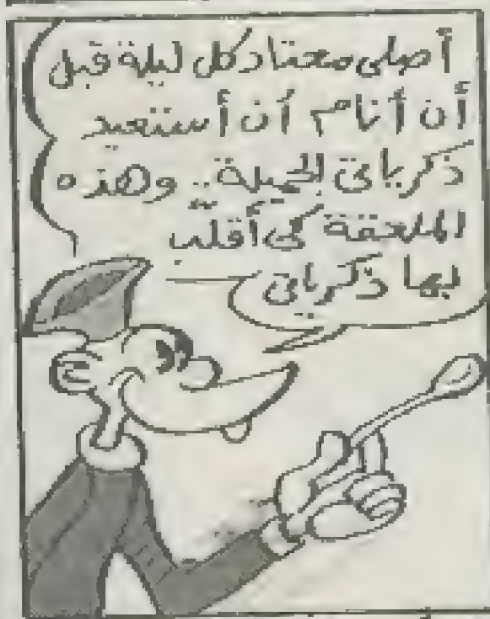 أصلى معتاد كل ليلة قبل
أن أنام أن أستعيد
ذكرياتى الجميلة.. وهذه
الملعقة كى أقلّب
بها ذكرياتى